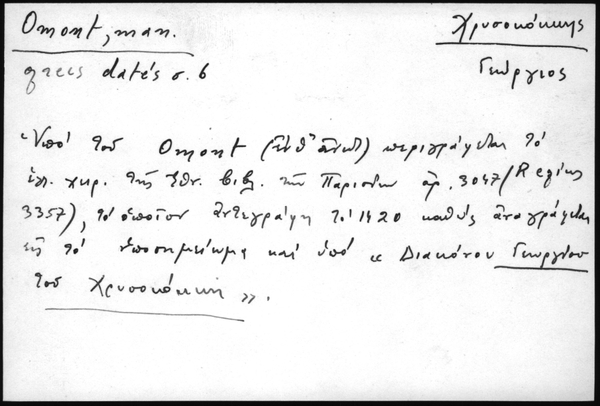 Omont, man.
Χρυσοκόκκης
grecs datés σ. 6
Γεώργιος
Ὑπό τοῦ Omont (ἔνθ' ἀνωτ) περιγράφεται τό
ἑλ. χειρ. τῆς Ἐθν. Βιβλ. τῶν Παρισίων ἀρ. 3047 (Regius
3357), τό ὁποῖον ἀντεγράφη τό 1420 καθώς ἀναγράφεται
εἰς τό ὑποσημείωμα καί ὑπό « Διακόνου Γεωργίου
τοῦ Χρυσοκόκκη ».